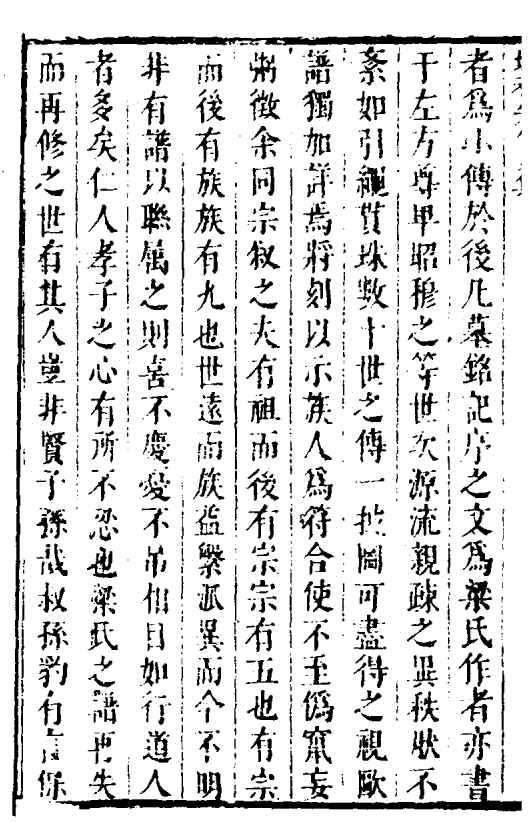 者為小傳於後凡墓銘記序之文為梁氏作者亦書
于左方尊卑昭穆之等世次源流親疎之異秩狀不
紊如引繩貫珠數十世之傳一披圖可盡得之視歐
譜獨加詳焉將刻以示族人為符合使不至偽竄妄
弊徵余同宗叙之夫有祖而後有宗宗有五也有宗
而後有族族有九也世遠而族益繁派異而分不明
非有譜以聯屬之則喜不慶憂不吊相目如行道人
者多矣仁人孝子之心有所不忍也梁氏之譜再失
而再修之世有其人豈非賢子孫哉叔孫豹有言保